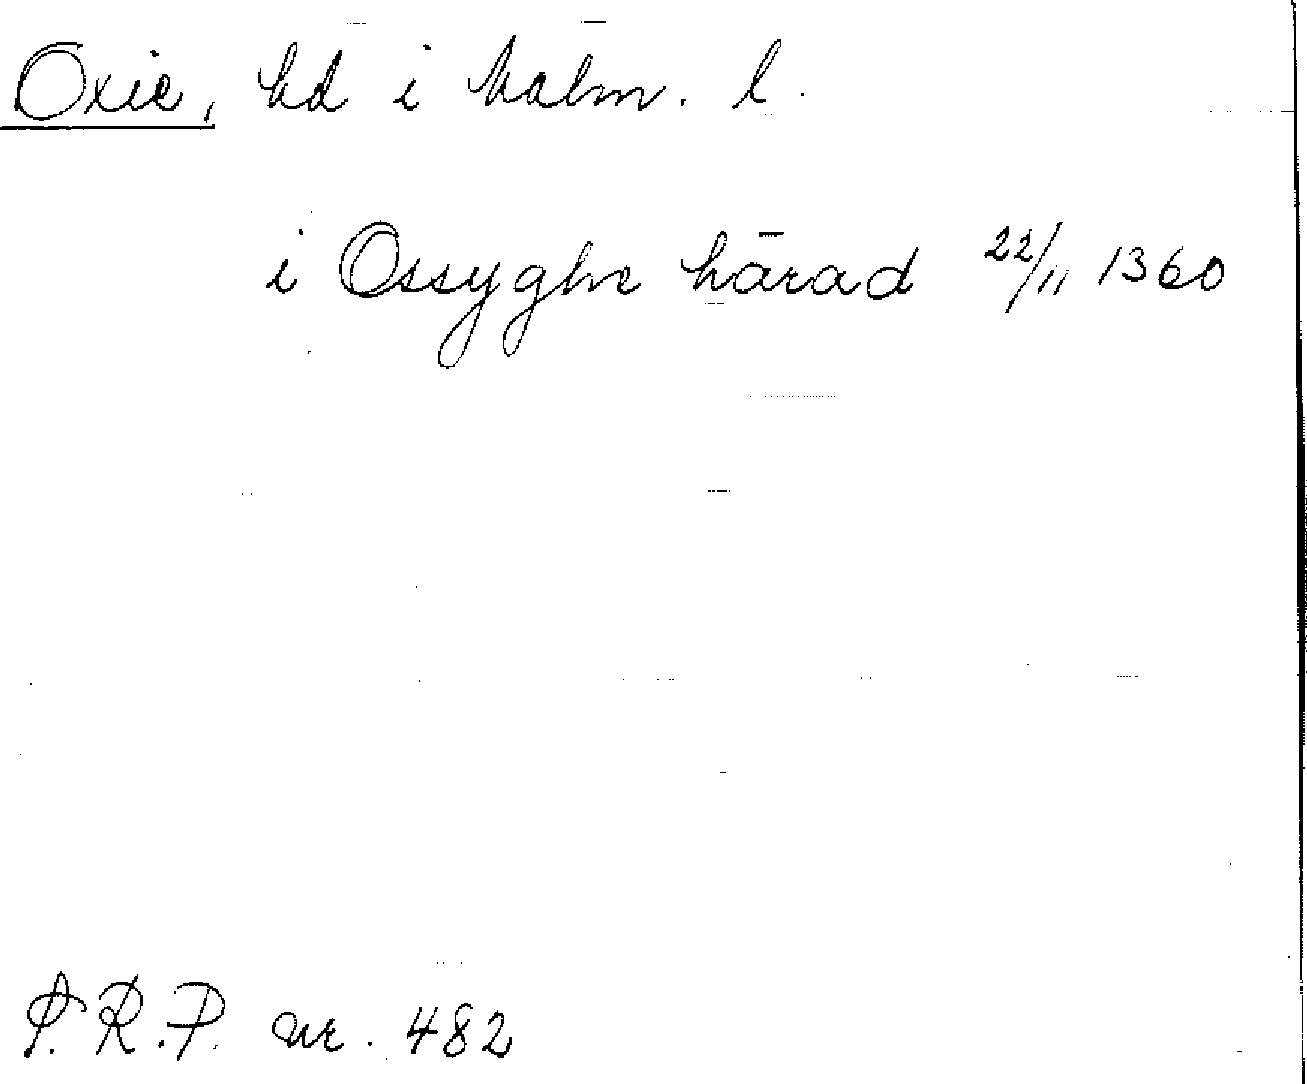 Oxie, hd i Malm. l.
i Ossyghe härad 22/11 1360
P.R.P. nr. 482